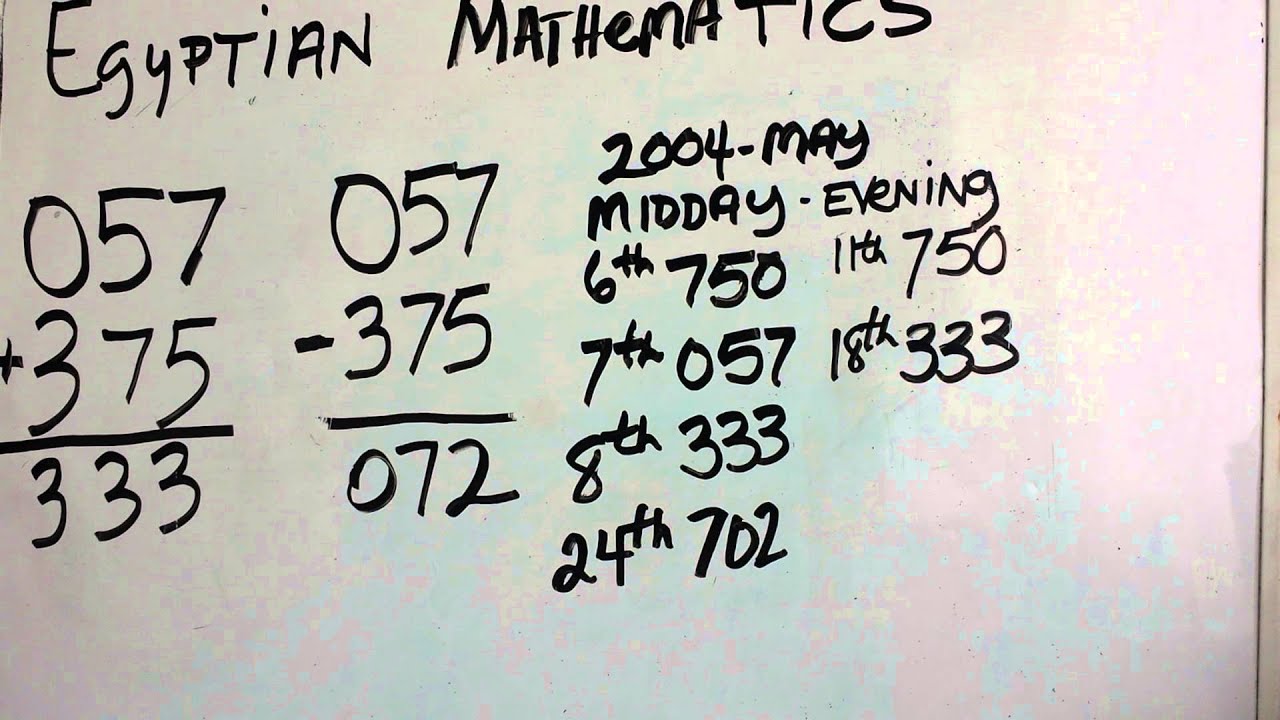 Egyptian Mathematics
057
+375
333
057
-375
072
2004-May
Midday - Evening
6th 750 11th 750
7th 057 18th 333
8th 333
24th 702